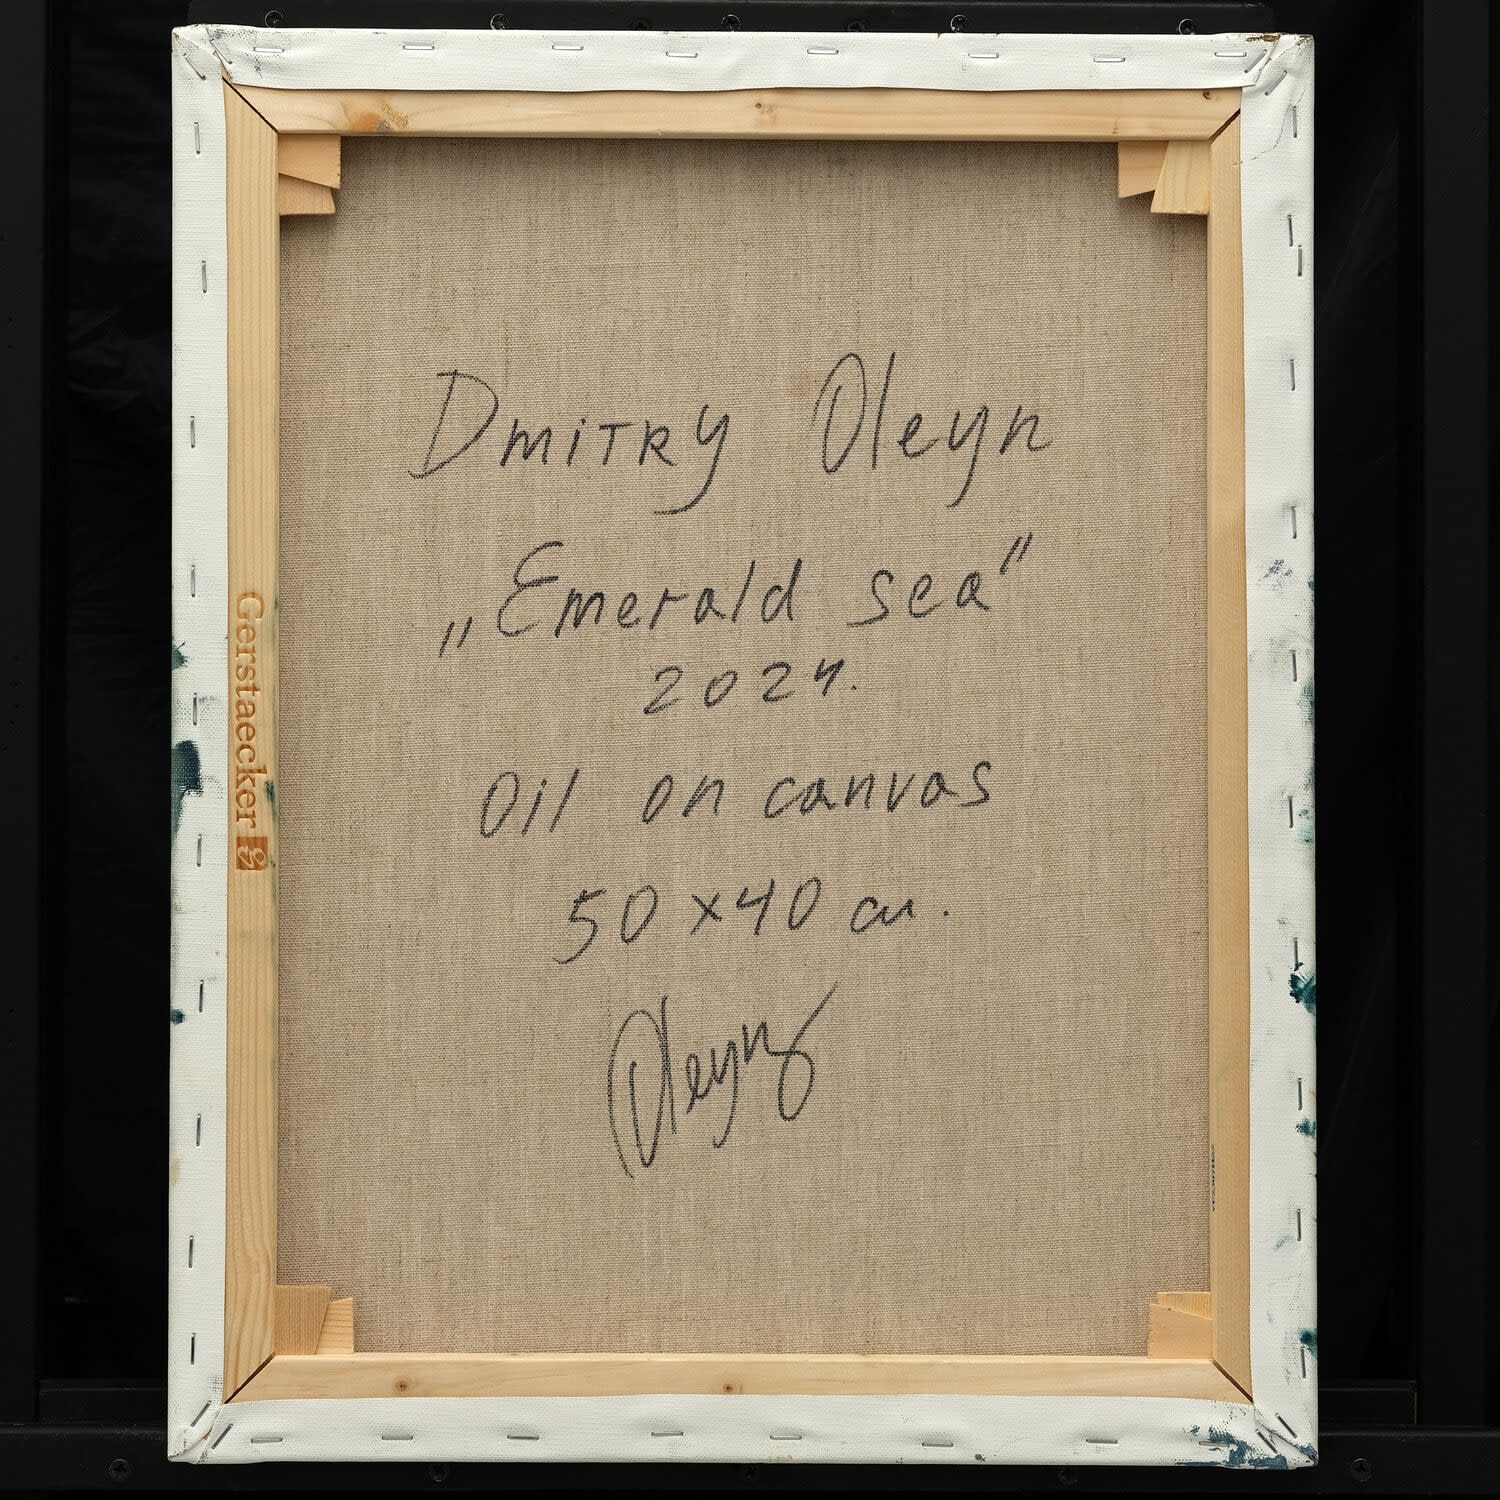 Dmitry Oleyn
„Emerald sea"
2024.
Oil on canvas
50 x 40 см.
Oleyn
Gerstaecker